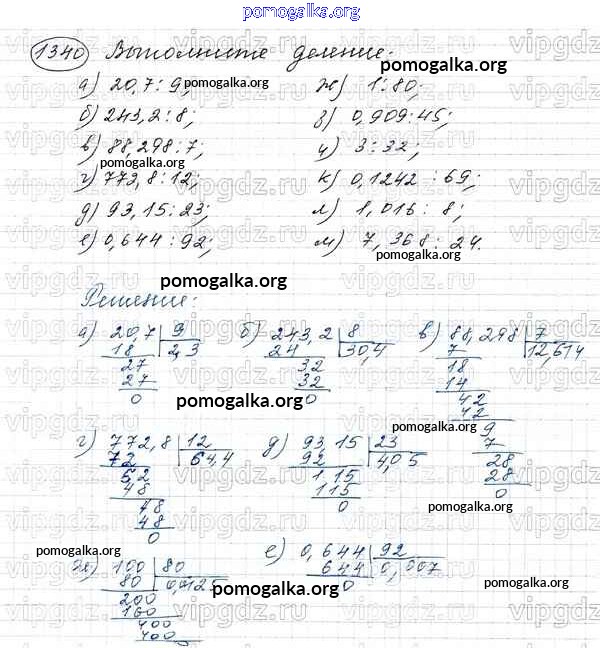 pomogalka.org
1340 Выполните деление:
pomogalka.org
а) 20,7 : 9; ж) 1 : 80;
pomogalka.org
б) 243,2 : 8; з) 0,909 : 45;
в) 88,298 : 7; и) 3 : 32;
pomogalka.org
г) 772,8 : 12; к) 0,1242 : 69;
д) 93,15 : 23; л) 1,016 : 8;
е) 0,644 : 92; м) 7,368 : 24.
pomogalka.org
Решение:
pomogalka.org
а) 20,7 9 б) 243,2 8 в) 88,298 7
18 2,3 24 30,4 7 12,614
27 32 18
27 32 14
0 0 42
pomogalka.org
42
9
г) 772,8 12 д) 93,15 23 7
72 64,4 92 4,05 28
52 1,15 28
48 115 0
48 0
48
0
pomogalka.org
pomogalka.org
ж) 100 80 е) 0,644 92
80 0,0125 644 0,007
200 0
160
400
400
pomogalka.org
pomogalka.org
vipgdz.ru